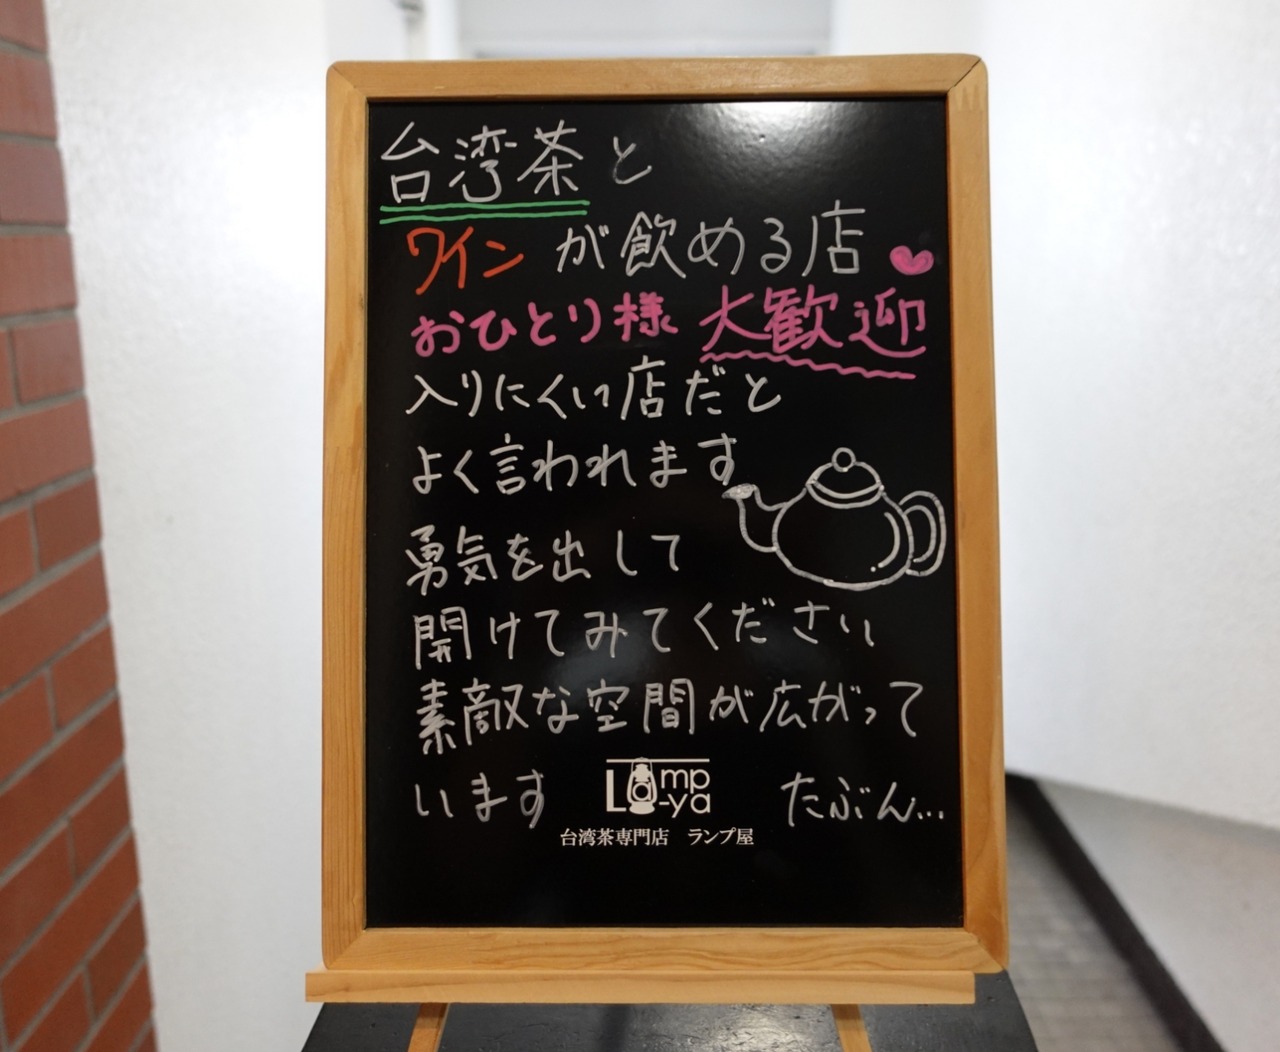 台湾茶と
ワインが飲める店
おひとり様 大歓迎
入りにくい店だと
よく言われます
勇気を出して
開けてみてください
素敵な空間が広がって
います たぶん…
Lamp-ya
台湾茶専門店 ランプ屋